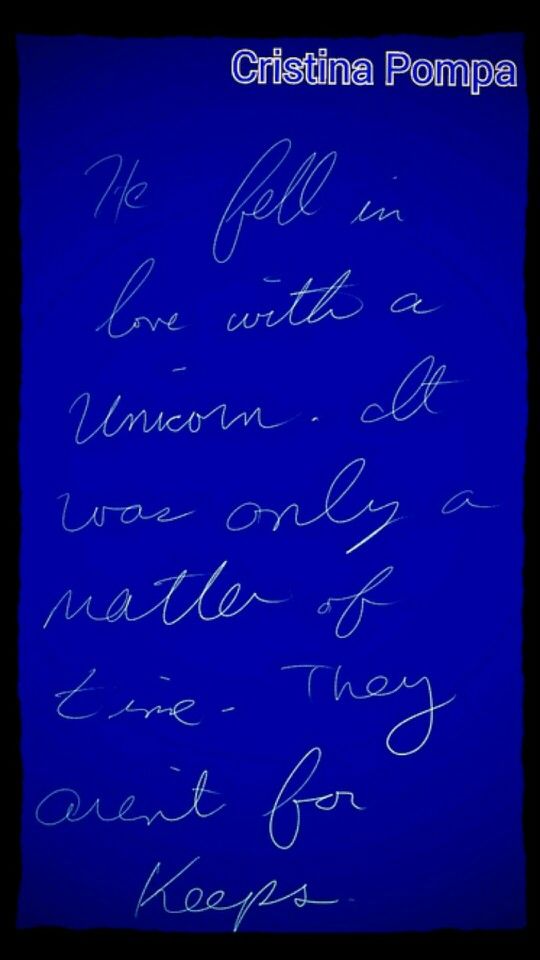 Cristina Pompa
He fell in
love with a
Unicorn. It
was only a
matter of
time. They
aren't for
Keeps.